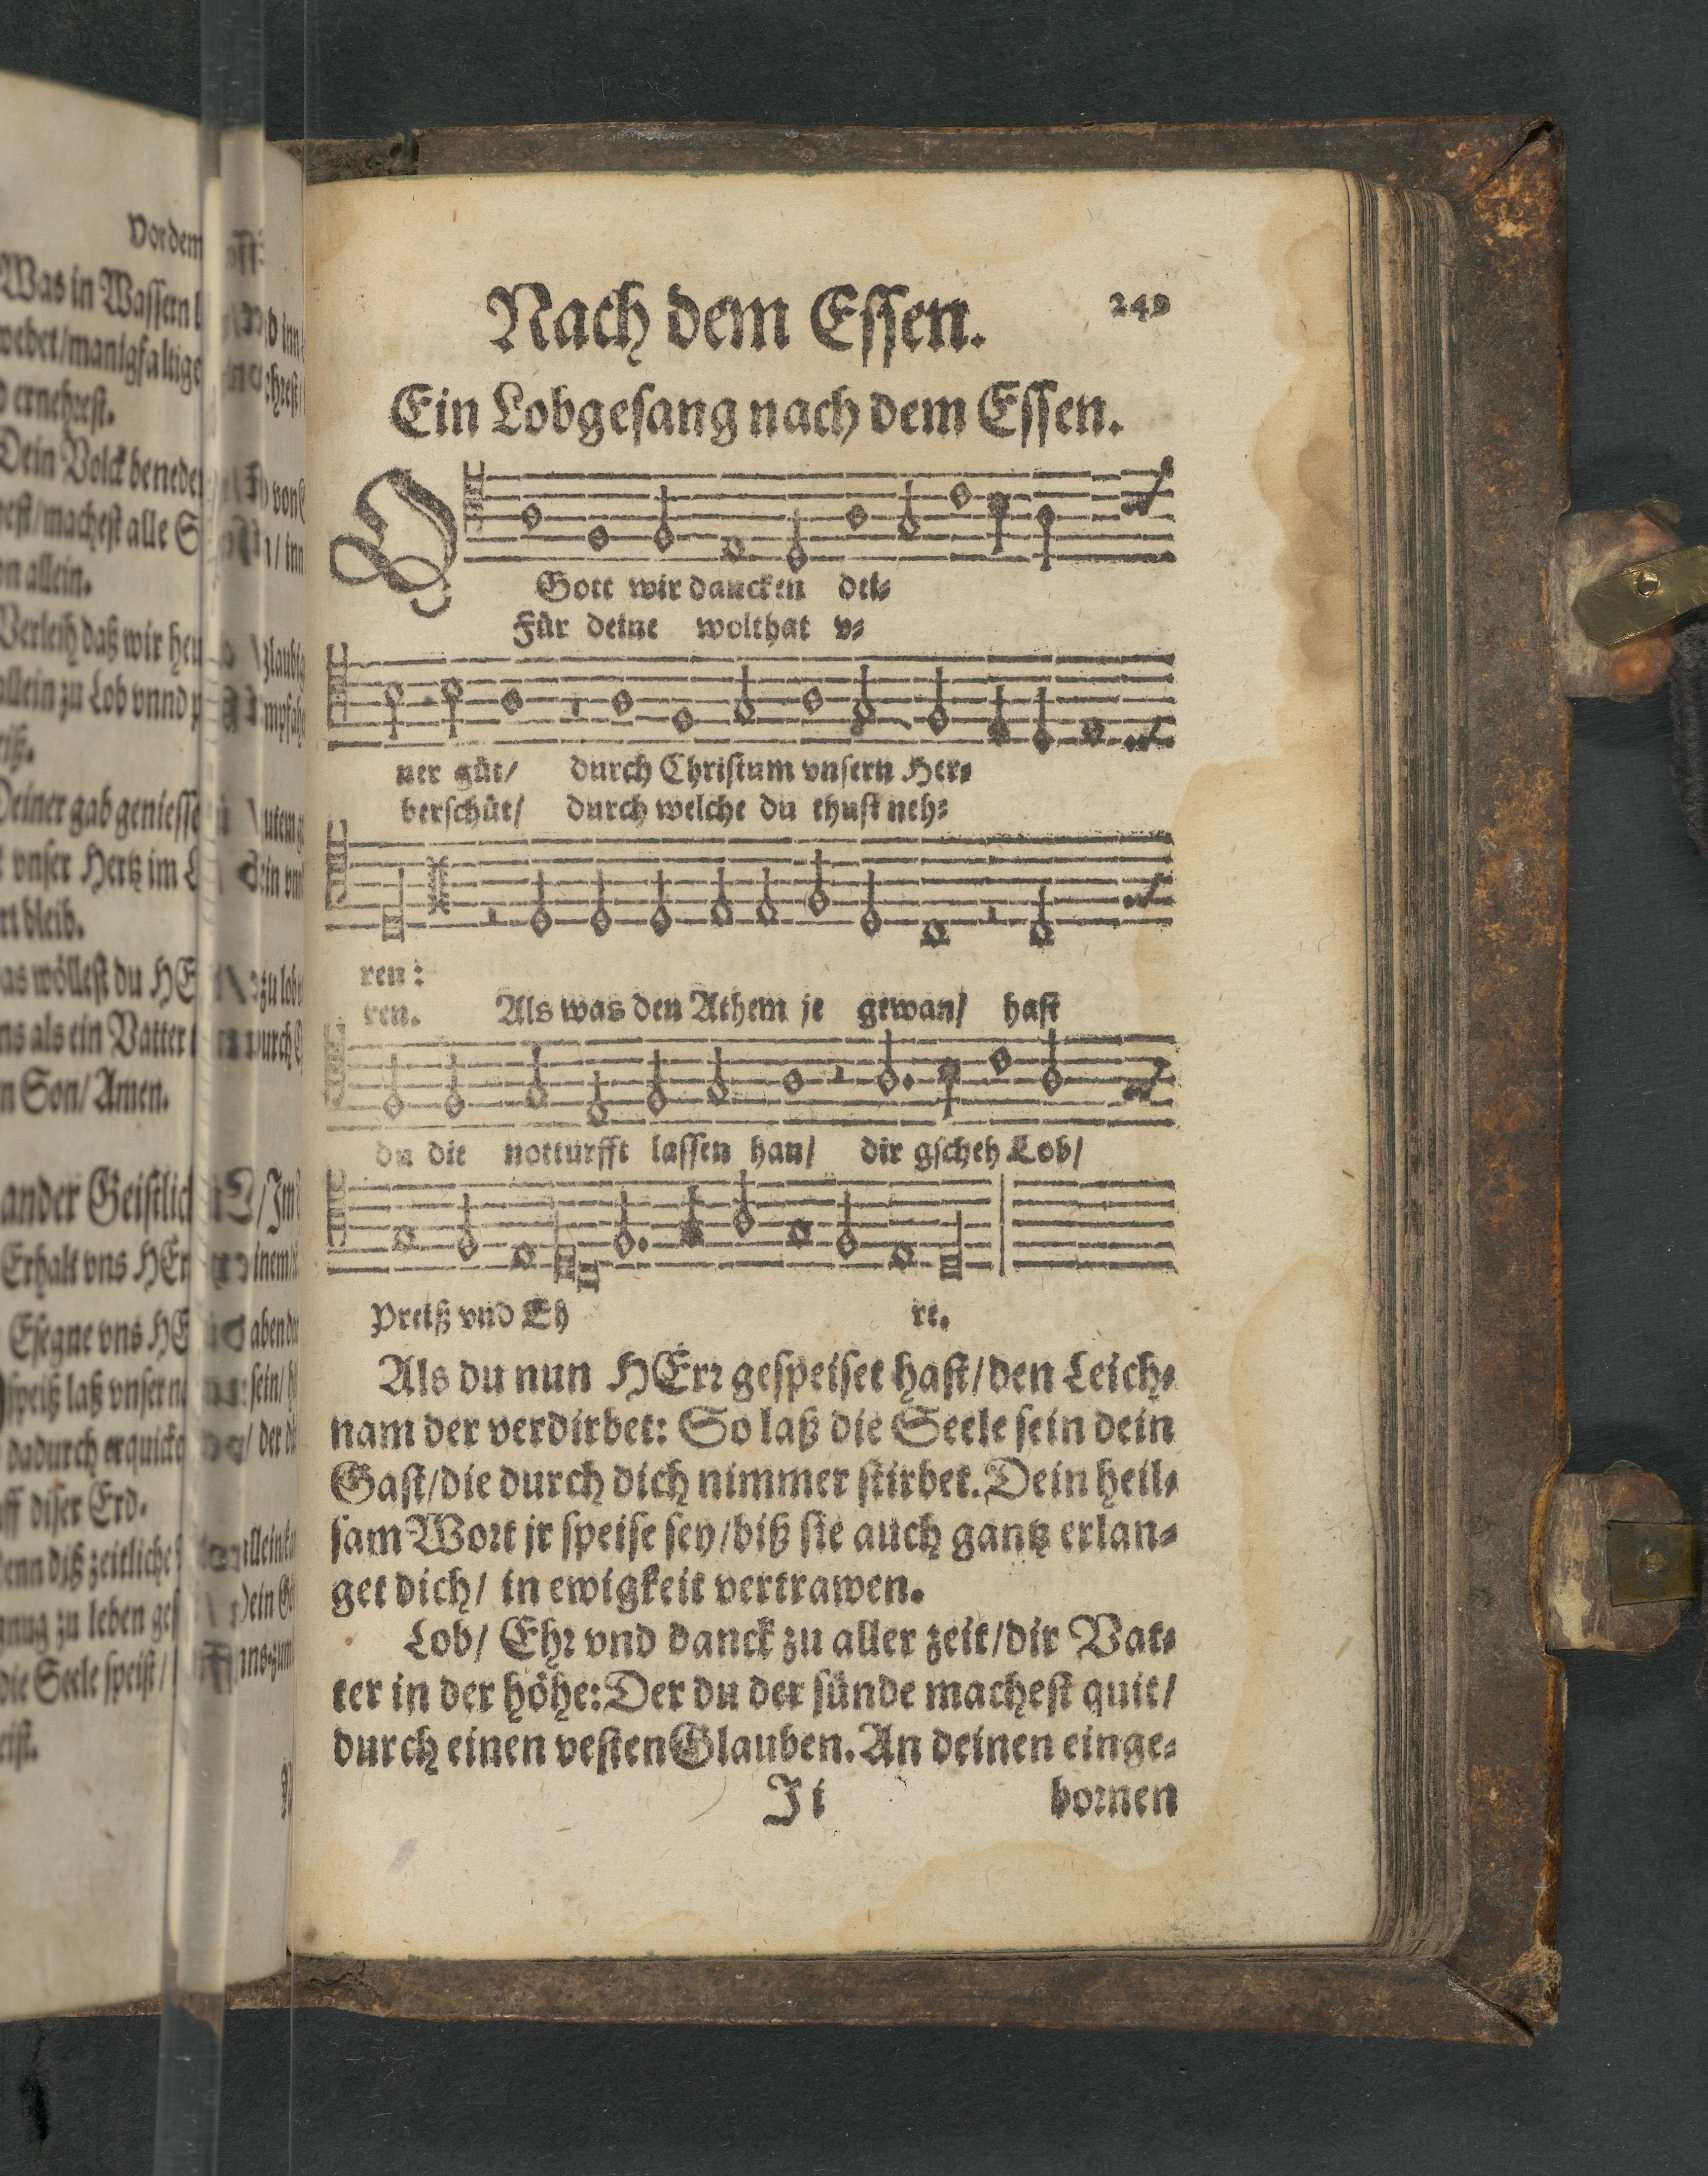 Vor dem
Was in Wassern l
webet/manigfaltige
d ernehrest.
Dein Volck benede
est/machest alle S
on allein.
Verleih daß wir heu
allein zu Lob vnnd p
Deiner gab geniesse
t vnser Hertz im L
rt bleib.
as wöllest du HE
ns als ein Vatter
n Son/Amen.
ander Geistlich
Erhalt vns HEr
Esegne vns HE
speiß laß vnser n
dadurch erquicke
uff diser Erd.
denn diß zeitliche
gnug zu leben ge
die Seele speist/
eist.
Nach dem Essen. 249
Ein Lobgesang nach dem Essen.
O Gott wir dancken dei⸗
Für deine wolthat v⸗
ner güt/ durch Christum vnsern Her⸗
berschüt/ durch welche du thust neh⸗
ren:
ren. Als was den Athem je gewan/ hast
du die notturfft lassen han/ dir gscheh Lob/
Preiß vnd Eh re.
Als du nun HErr gespeiset hast/den Leich⸗
nam der verdirbet: So laß die Seele sein dein
Gast/die durch dich nimmer stirbet. Dein heil⸗
sam Wort jr speise sey/biß sie auch gantz erlan⸗
get dich/ in ewigkeit vertrawen.
Lob/ Ehr vnd danck zu aller zeit/dir Vat⸗
ter in der höhe: Der du der sünde machest quit/
durch einen vesten Glauben. An deinen einge⸗
Ji bornen